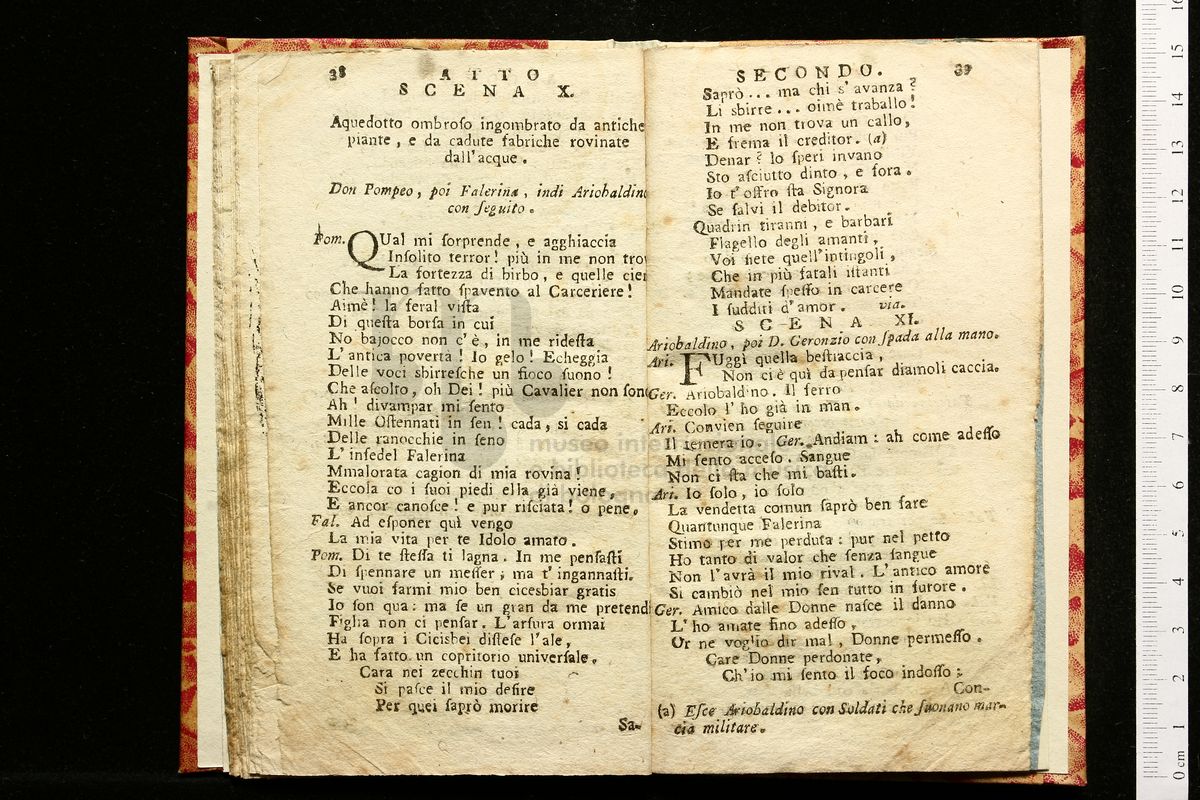 38 ATTO
SCENA X.
Aquedotto ombroſo ingombrato da antiche
piante, e da cadute fabriche rovinate
dall'acque.
Don Pompeo, poi Falerina, indi Ariobaldino
con ſeguito.
Pom. QUal mi ſorprende, e agghiaccia
Inſolito terror! più in me non trov
La fortezza di birbo, e quelle cier
Che hanno fatto ſpavento al Carceriere!
Aimè! la feral viſta
Di queſta borſa in cui
No bajocco non c'è, in me rideſta
L'antica povertà! Io gelo! Echeggia
Delle voci sbirreſche un fioco ſuono!
Che aſcolto, oh Dei! più Cavalier non ſono
Ah! divampar mi ſento
Mille Oſtennati in ſen! cada, si cada
Delle ranocchie in ſeno
L'infedel Falerina
Mmalorata cagion di mia rovina!
Eccola co i ſuoi piedi ella già viene,
E ancor canoſce! e pur riſciata! o pene.
Fal. Ad eſponer quì vengo
La mia vita per te Idolo amato.
Pom. Di te ſteſſa ti lagna. In me penſaſti
Di ſpennare un meſſer, ma t'ingannaſti.
Se vuoi farmi mio ben cicesbiar gratis
Io ſon qua: ma ſe un gran da me pretendi
Figlia non ci penſar. L'arſura ormai
Ha ſopra i Cicisbei diſteſe l'ale,
E ha fatto un copritorio univerſale.
Cara nei zecchin tuoi
Si paſce il mio deſire
Per quei ſaprò morire
Sa-
SECONDO. 39
Saprò... ma chi s'avanza?
Li sbirre... oimè traballo!
In me non trova un callo,
E frema il creditor. (a)
Denar? lo ſperi invano
Sto aſciutto dinto, e fora.
Io t'offro ſta Signora
Se ſalvi il debitor.
Quadrin tiranni, e barbari
Flagello degli amanti,
Voi ſiete quell'intingoli,
Che in più fatali iſtanti
Mandate ſpeſſo in carcere
I ſudditi d'amor. via.
SCENA XI.
Ariobaldino, poi D. Geronzio con ſpada alla mano.
Ari. FUggì quella beſtiaccia,
Non ci è quì da penſar diamoli caccia.
Ger. Ariobaldino. Il ferro
Eccolo l'ho già in man.
Ari. Convien ſeguire
Il temerario. Ger. Andiam: ah come adeſſo
Mi ſento acceſo. Sangue
Non ci ſta che mi baſti.
Ari. Io ſolo, io ſolo
La vendetta comun ſaprò ben fare
Quantunque Falerina
Stimo per me perduta: pur nel petto
Ho tanto di valor che ſenza ſangue
Non l'avrà il mio rival. L'antico amore
Si cambiò nel mio ſen tutto in furore.
Ger. Amico dalle Donne naſce il danno
L'ho amate fino adeſſo,
Or ne voglio dir mal, Donne permeſſo.
Care Donne perdonate,
Ch'io mi ſento il foco indoſſo:
Con-
(a) Eſce Ariobaldino con Soldati che ſuonano mar-
cia militare.